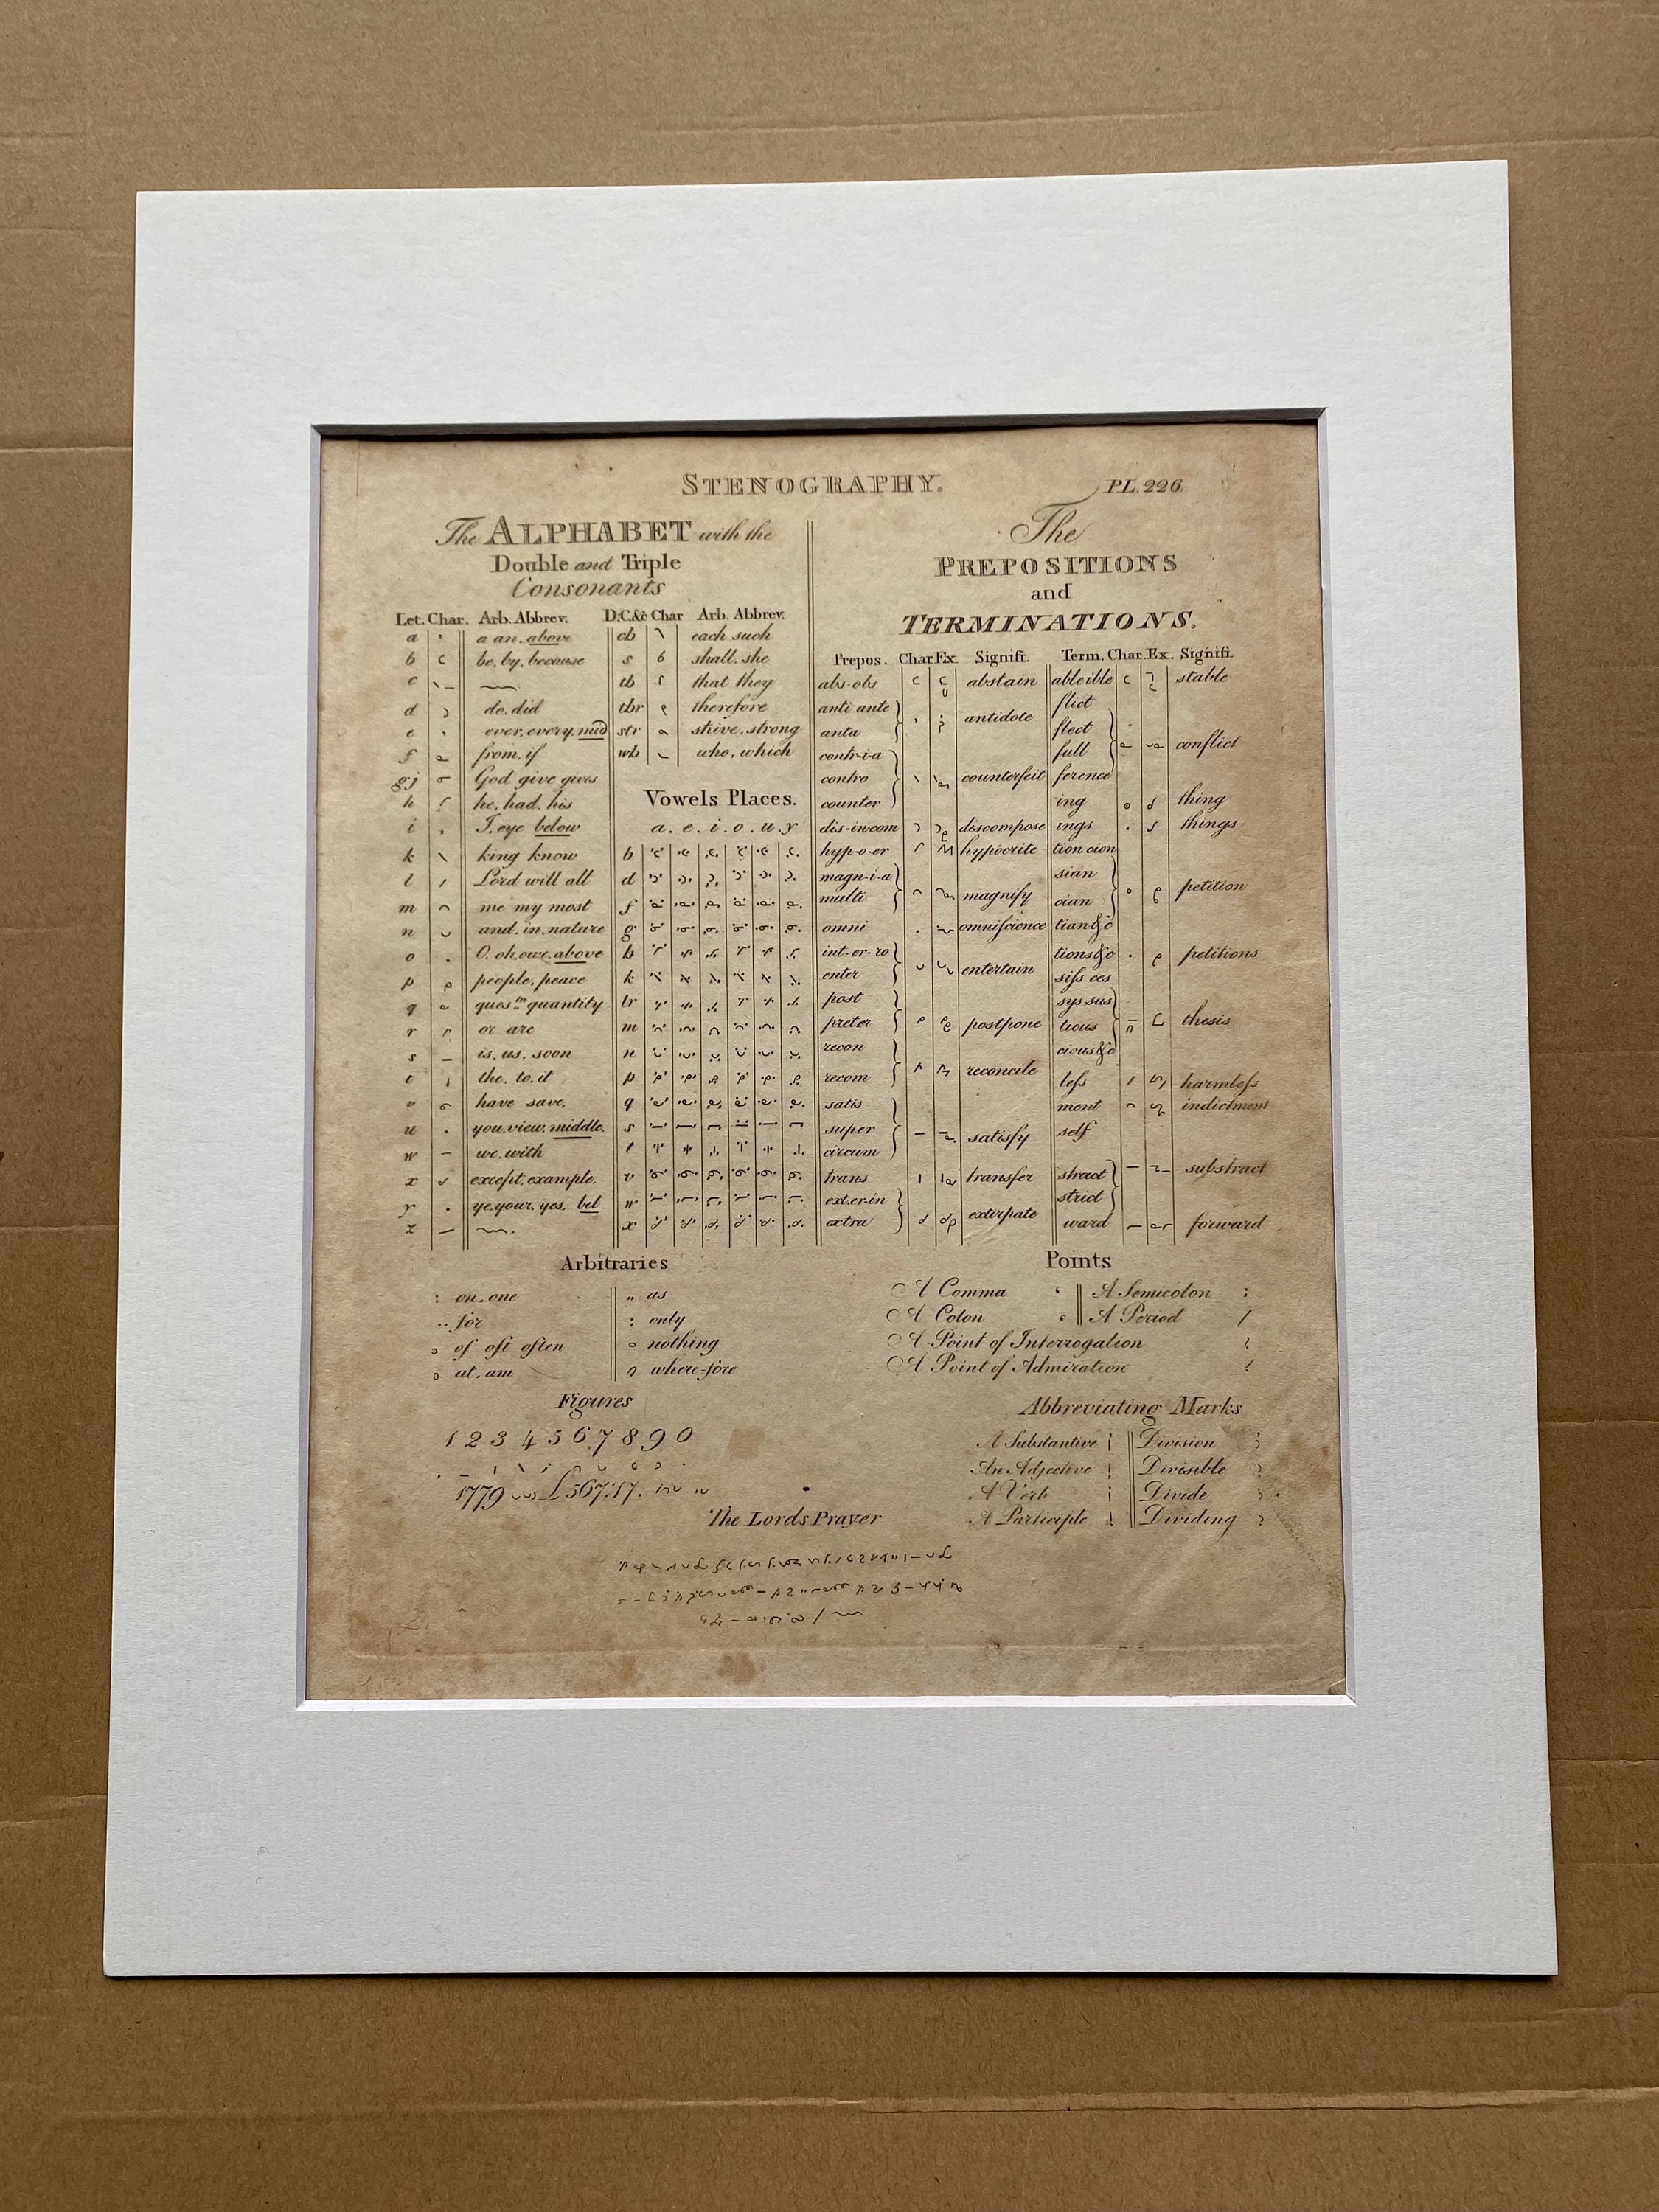 STENOGRAPHY.
PL. 226.
The ALPHABET with the
Double and Triple
Consonants
Let. Char. Arb. Abbrev.
a a an. above
b be, by, because
c
d do. did
e ever, every, mid
f from, if
g j God give gives
h he, had, his
i I, eye below
k king know
l Lord will all
m me my most
n and. in. nature
o O. oh, owe, above
p people, peace
q ques.m quantity
r or are
s is, us, soon
t the. to. it
v have save,
u you, view, middle,
w we. with
x except, example.
y ye, your, yes, bel
z
D:C.&c Char Arb. Abbrev.
ch each such
s shall. she
th that they
thr therefore
str strive, strong
wh who, which
Vowels Places.
a . e . i . o . u . y
b
d
f
g
h
k
lr
m
n
p
q
s
t
v
w
x
The
PREPOSITIONS
and
TERMINATIONS.
Prepos. Char Ex. Signifi.
abs-obs abstain
anti ante
anta antidote
contr-i-a
contro
counter counterfeit
dis-in-com discompose
hyp-o-er hypocrite
magn-i-a
multi magnify
omni omniscience
int-er-ro
enter entertain
post
preter postpone
recon
recom reconcile
satis
super
circum satisfy
trans transfer
ext-er-in
extra extirpate
Term. Char. Ex. Signifi.
able ible stable
flict
flect
full conflict
ference
ing thing
ings things
tion cion
sian
cian petition
tian&c
tions&c petitions
siss ces
sys sus
tious thesis
cious&c
less harmless
ment indictment
self
stract substract
strict
ward forward
Arbitraries
: on. one
.. for
of oft often
at. am
" as
; only
nothing
where-fore
Points
A Comma
A Colon
A Semicolon ;
A Period /
A Point of Interrogation
A Point of Admiration
Figures
1 2 3 4 5 6 7 8 9 0
1779 £567:17.
Abbreviating Marks
A Substantive
An Adjective
A Verb
A Participle
Division
Divisible
Divide
Dividing
The Lords Prayer